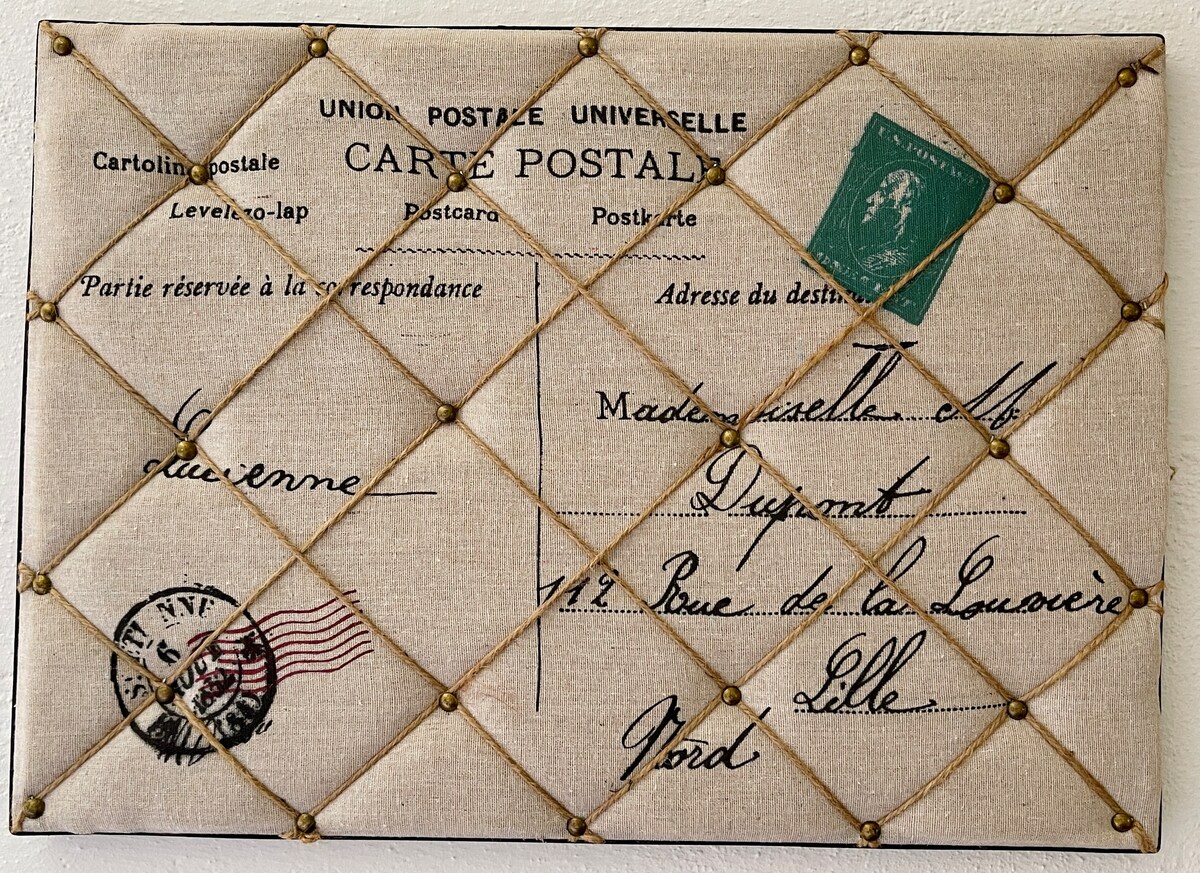 UNION POSTALE UNIVERSELLE
CARTE POSTALE
Cartolina postale
Levelezo-lap Postcard Postkarte
Partie réservée à la correspondance
Adresse du destina
U.S. POSTAGE
Mademoiselle M
Lucienne
Dupont
112 Rue de la Louvière
Lille
Nord
6
AOUT